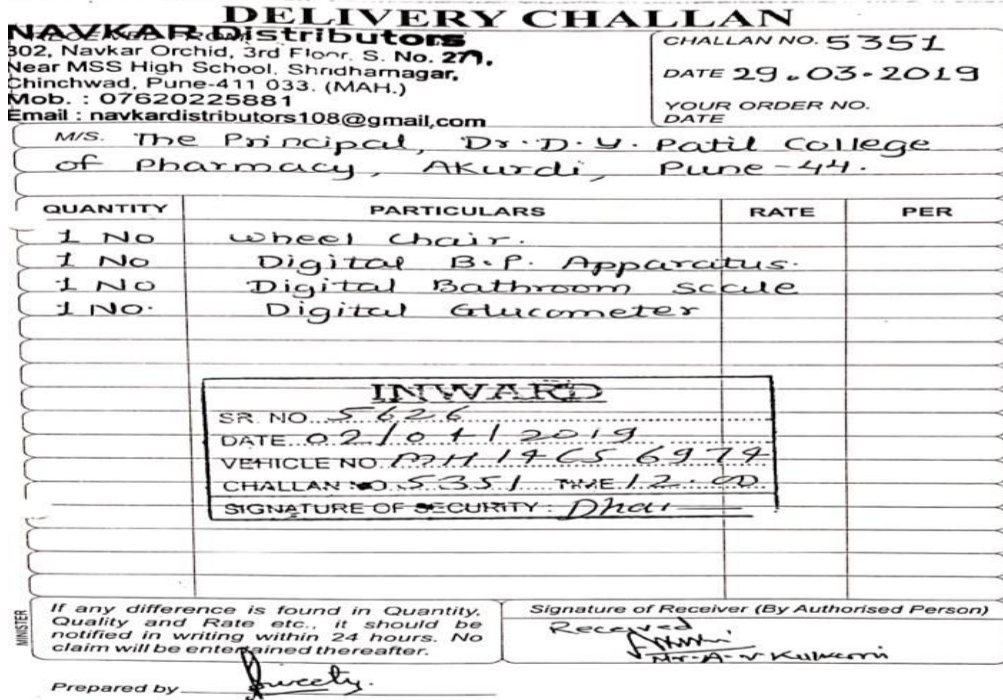 DELIVERY CHALLAN
NAVKAR Distributors
302, Navkar Orchid, 3rd Floor. S. No. 279,
Near MSS High School, Shridharnagar,
Chinchwad, Pune-411 033. (MAH.)
Mob. : 07620225881
Email : navkardistributors108@gmail,com
CHALLAN NO. 5351
DATE 29.03.2019
YOUR ORDER NO.
DATE
M/S. The Principal, Dr. D. Y. Patil College
of Pharmacy, Akurdi, Pune-44.
QUANTITY PARTICULARS RATE PER
1 No Wheel Chair.
1 No Digital B.P. Apparatus.
1 No Digital Bathroom Scale
1 No. Digital Glucometer
INWARD
SR. NO. 5626
DATE 02/04/2019
VEHICLE NO. MH14CS 6974
CHALLAN NO. 5351 TIME 12.00
SIGNATURE OF SECURITY :
If any difference is found in Quantity,
Quality and Rate etc., it should be
notified in writing within 24 hours. No
claim will be entertained thereafter.
Signature of Receiver (By Authorised Person)
Received
Mr. A. V. Kulkarni
MINISTER
Prepared by